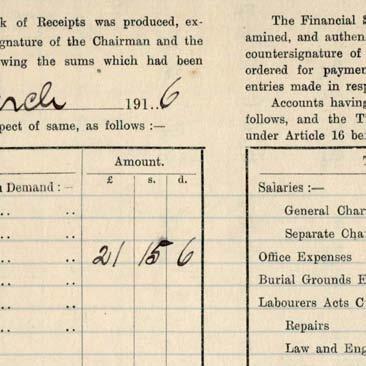 k of Receipts was produced, ex-
gnature of the Chairman and the
wing the sums which had been
arch 191..6
pect of same, as follows :—
Amount.
£ s. d.
n Demand :—
.. ..
.. ..
.. .. 21 15 6
.. ..
.. ..
.. ..
The Financial S
amined, and authen
countersignature of
ordered for paymen
entries made in resp
Accounts having
follows, and the T
under Article 16 be
T
Salaries :—
General Char
Separate Cha
Office Expenses
Burial Grounds E
Labourers Acts C
Repairs
Law and Eng